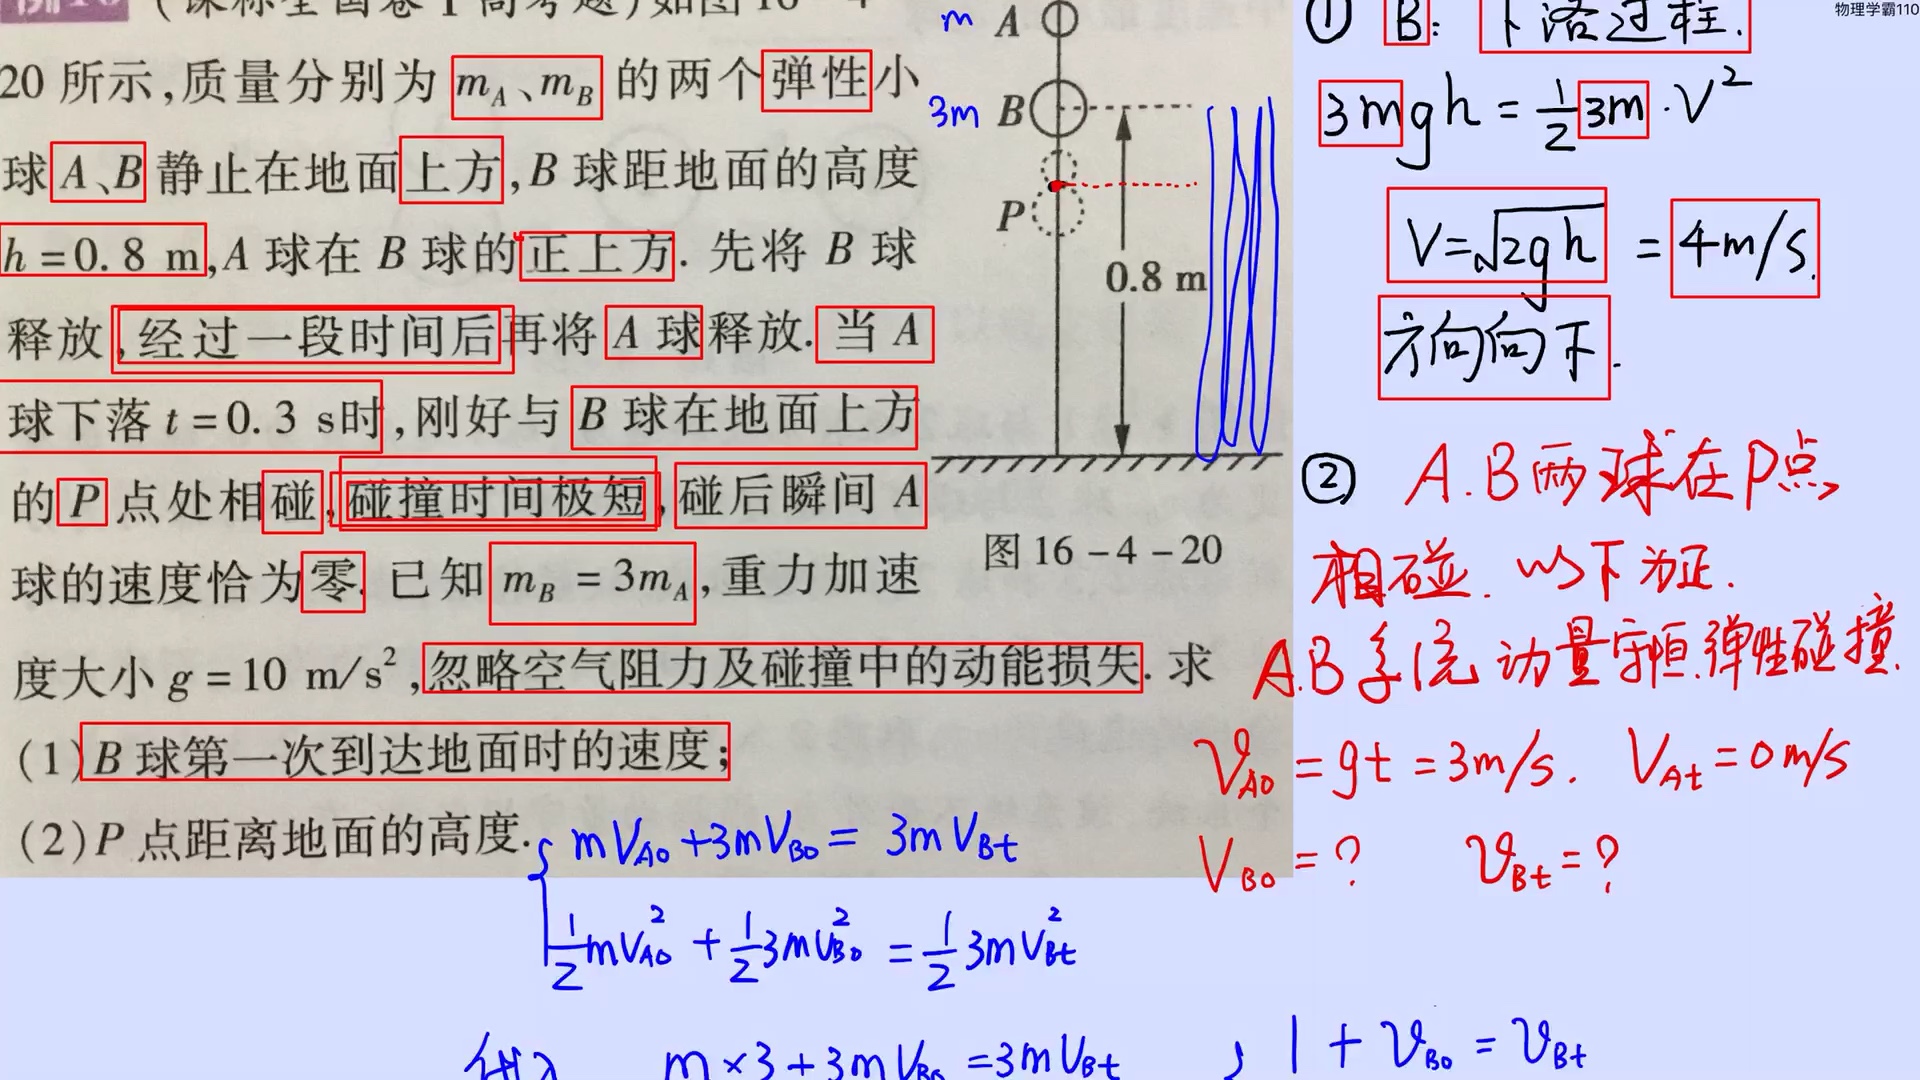 例16 (课标全国卷Ⅰ高考题)如图16-4-
20所示,质量分别为mA、mB的两个弹性小
球A、B静止在地面上方,B球距地面的高度
h=0.8 m,A球在B球的正上方. 先将B球
释放,经过一段时间后再将A球释放. 当A
球下落t=0.3 s时,刚好与B球在地面上方
的P点处相碰,碰撞时间极短,碰后瞬间A
球的速度恰为零. 已知mB=3mA,重力加速
度大小g=10 m/s²,忽略空气阻力及碰撞中的动能损失. 求
(1)B球第一次到达地面时的速度;
(2)P点距离地面的高度.
m A
3m B
P
0.8 m
图16-4-20
物理学霸110
① B: 下落过程.
3mgh=½3m·V²
V=√2gh =4m/s.
方向向下.
② A.B两球在P点
相碰. 以下为正.
A.B系统动量守恒.弹性碰撞.
VA0=gt=3m/s. VAt=0m/s
VB0=? VBt=?
mVA0+3mVB0=3mVBt
½mVA0²+½3mVB0²=½3mVBt²
代入 m×3+3mVB0=3mVBt
1+VB0=VBt